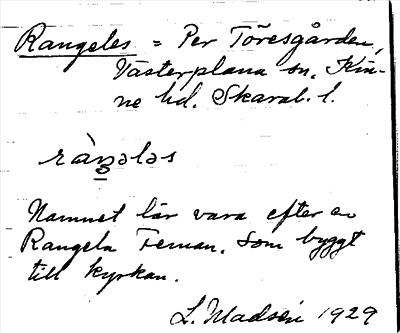 Rangeles = Per Töresgården,
Västerplana sn. Kin-
ne hd. Skarab. l.
ràŋələs
Namnet lär vara efter en
Rangela Feman. som byggt
till kyrkan.
L. Madsén 1929